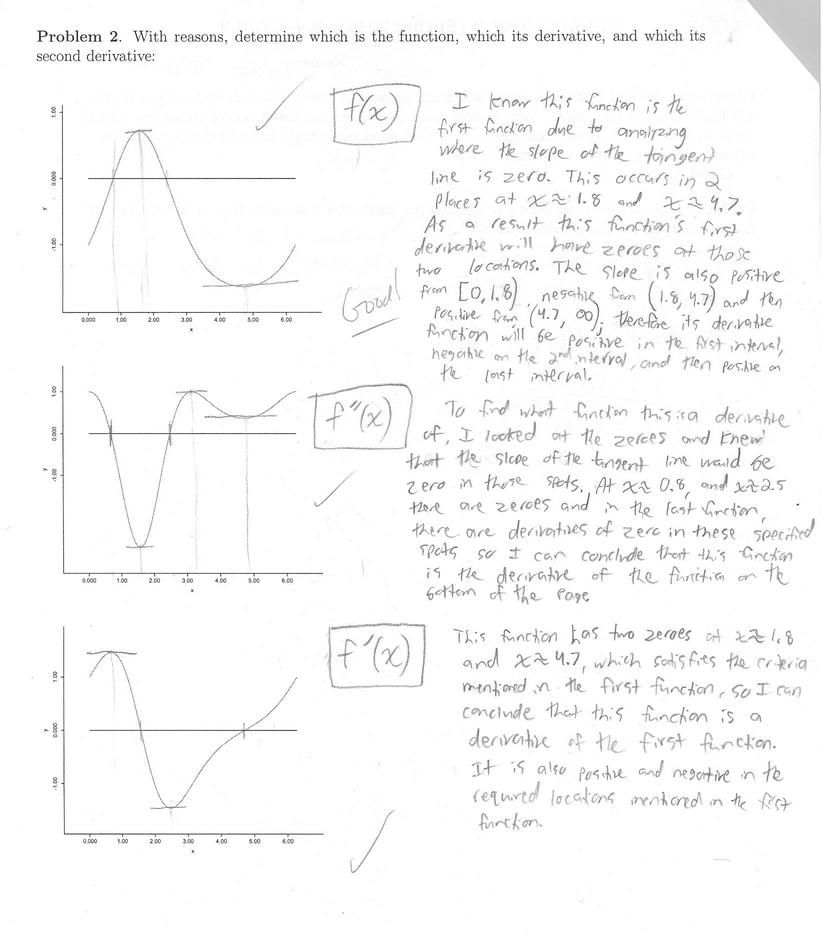 Problem 2. With reasons, determine which is the function, which its derivative, and which its
second derivative:
1.00
0.000
-1.00
y
0.000 1.00 2.00 3.00 4.00 5.00 6.00
x
f(x)
I know this function is the
first function due to analyzing
where the slope of the tangent
line is zero. This occurs in 2
places at x≈1.8 and x≈4.7.
As a result this function's first
derivative will have zeroes at those
two locations. The slope is also positive
from [0,1.8), negative from (1.8,4.7) and then
positive from (4.7, ∞); therefore its derivative
function will be positive in the first interval,
negative on the 2nd interval, and then positive on
the last interval.
Good!
1.00
0.000
-1.00
y
0.000 1.00 2.00 3.00 4.00 5.00 6.00
x
f"(x)
To find what function this is a derivative
of, I looked at the zeroes and knew
that the slope of the tangent line would be
zero in those spots. At x≈0.8, and x≈2.5
there are zeroes and in the last function,
there are derivatives of zero in these specified
spots so I can conclude that this function
is the derivative of the function on the
bottom of the page
1.00
0.000
-1.00
y
0.000 1.00 2.00 3.00 4.00 5.00 6.00
x
f'(x)
This function has two zeroes at x≈1.8
and x≈4.7, which satisfies the criteria
mentioned in the first function, so I can
conclude that this function is a
derivative of the first function.
It is also positive and negative in the
required locations mentioned in the first
function.